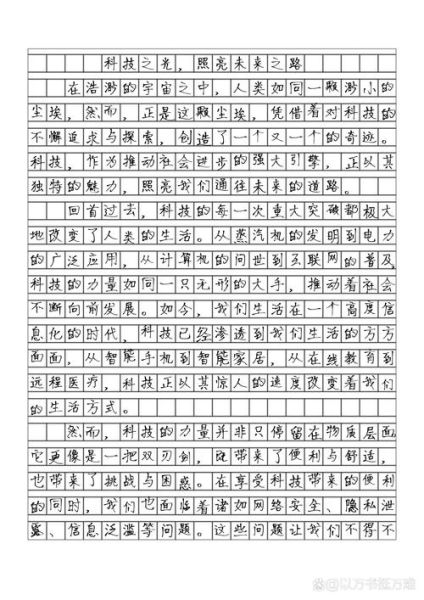 科技之光，照亮未来之路
在浩渺的宇宙之中，人类如同一颗渺小的
尘埃，然而，正是这颗尘埃，凭借着对科技的
不懈追求与探索，创造了一个又一个的奇迹。
科技，作为推动社会进步的强大引擎，正以其
独特的魅力，照亮我们通往未来的道路。
回首过去，科技的每一次重大突破都极大
地改变了人类的生活。从蒸汽机的发明到电力
的广泛应用，从计算机的问世到互联网的普及，
科技的力量如同一只无形的大手，推动着社会
不断向前发展。如今，我们生活在一个高度信
息化的时代，科技已经渗透到我们生活的方方
面面，从智能手机到智能家居，从在线教育到
远程医疗，科技正以其惊人的速度改变着我们
的生活方式。
然而，科技的力量并非只停留在物质层面
它更像是一把双刃剑，既带来了便利与舒适，
也带来了挑战与困惑。在享受科技带来的便利
的同时，我们也面临着诸如网络安全、隐私泄
露、信息泛滥等问题。这些问题让我们不得不
@以万书抵万难